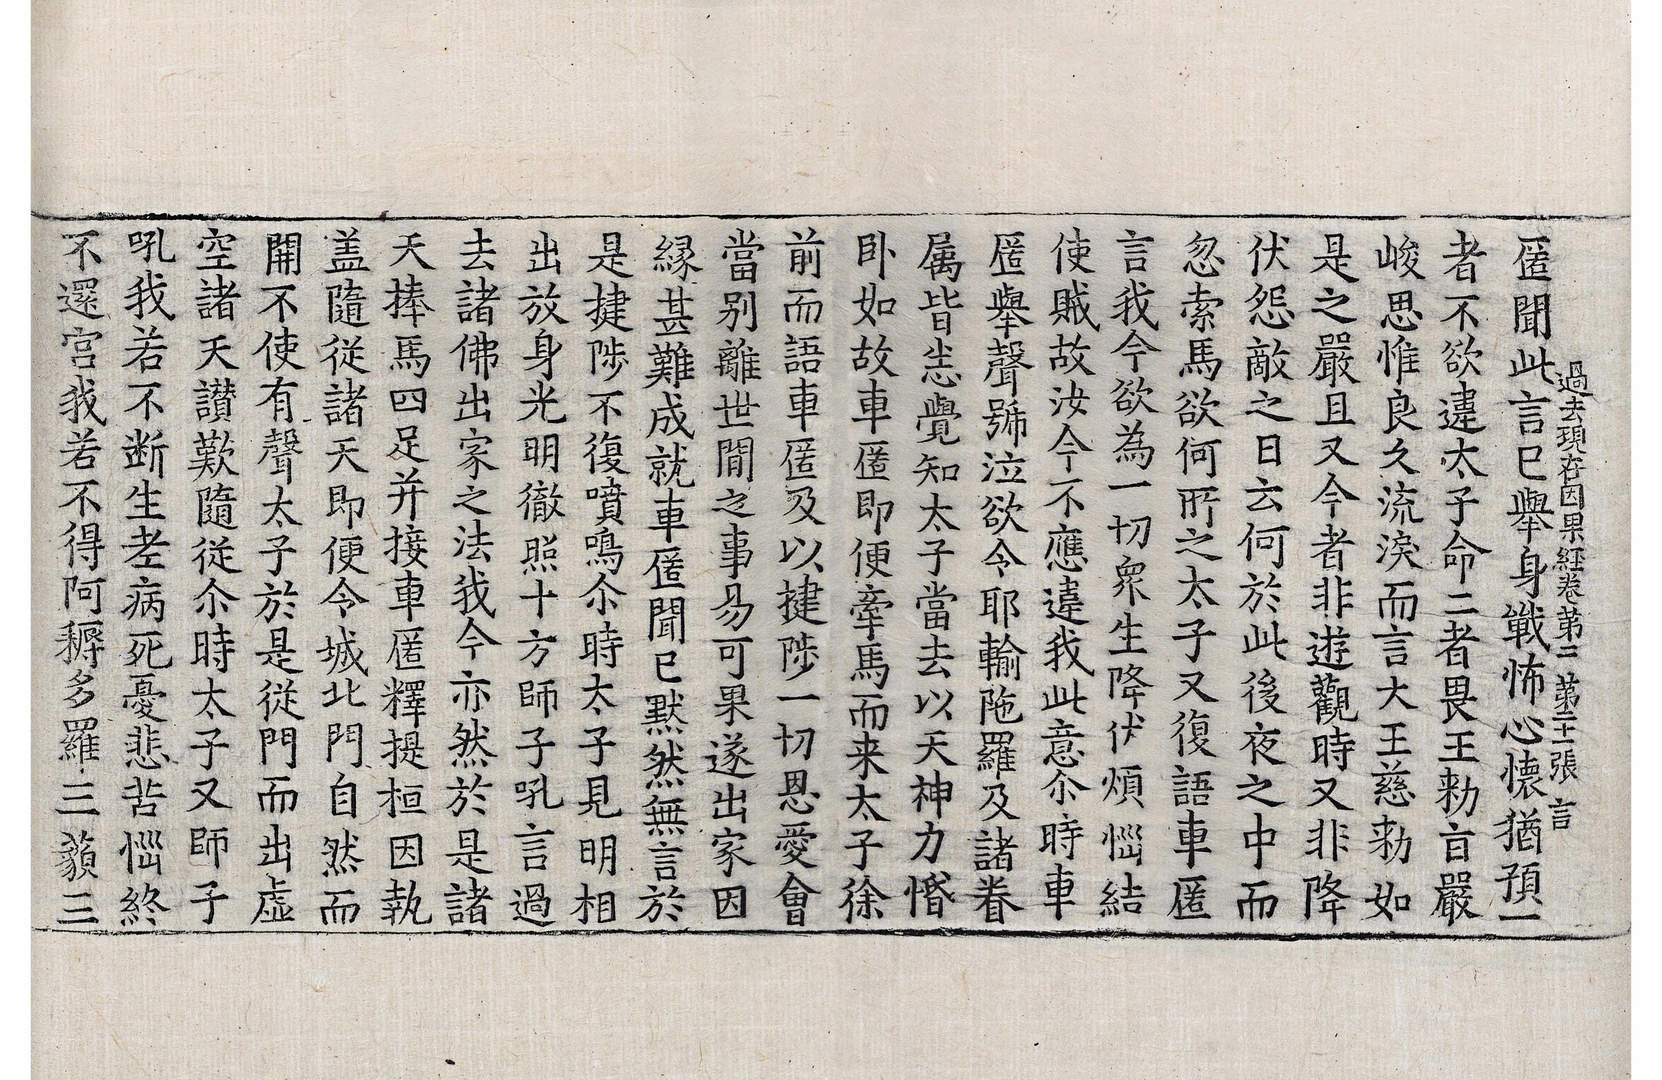 過去現在因果經卷第二 第二十一張 言
匿聞此言已舉身戰怖心懷猶預一
者不欲違太子命二者畏王勑旨嚴
峻思惟良久流淚而言大王慈勑如
是之嚴且又今者非遊觀時又非降
伏怨敵之日云何於此後夜之中而
忽索馬欲何所之太子又復語車匿
言我今欲為一切衆生降伏煩惱結
使賊故汝今不應違我此意尒時車
匿舉聲號泣欲令耶輸陁羅及諸眷
属皆悉覺知太子當去以天神力惛
卧如故車匿即便牽馬而来太子徐
前而語車匿及以揵陟一切恩愛會
當別離世間之事易可果遂出家因
縁甚難成就車匿聞已默然無言於
是揵陟不復噴鳴尒時太子見明相
出放身光明徹照十方師子吼言過
去諸佛出家之法我今亦然於是諸
天捧馬四足并接車匿釋提桓因執
盖隨從諸天即便令城北門自然而
開不使有聲太子於是從門而出虛
空諸天讃歎隨從尒時太子又師子
吼我若不断生老病死憂悲苦惱終
不還宮我若不得阿耨多羅三藐三